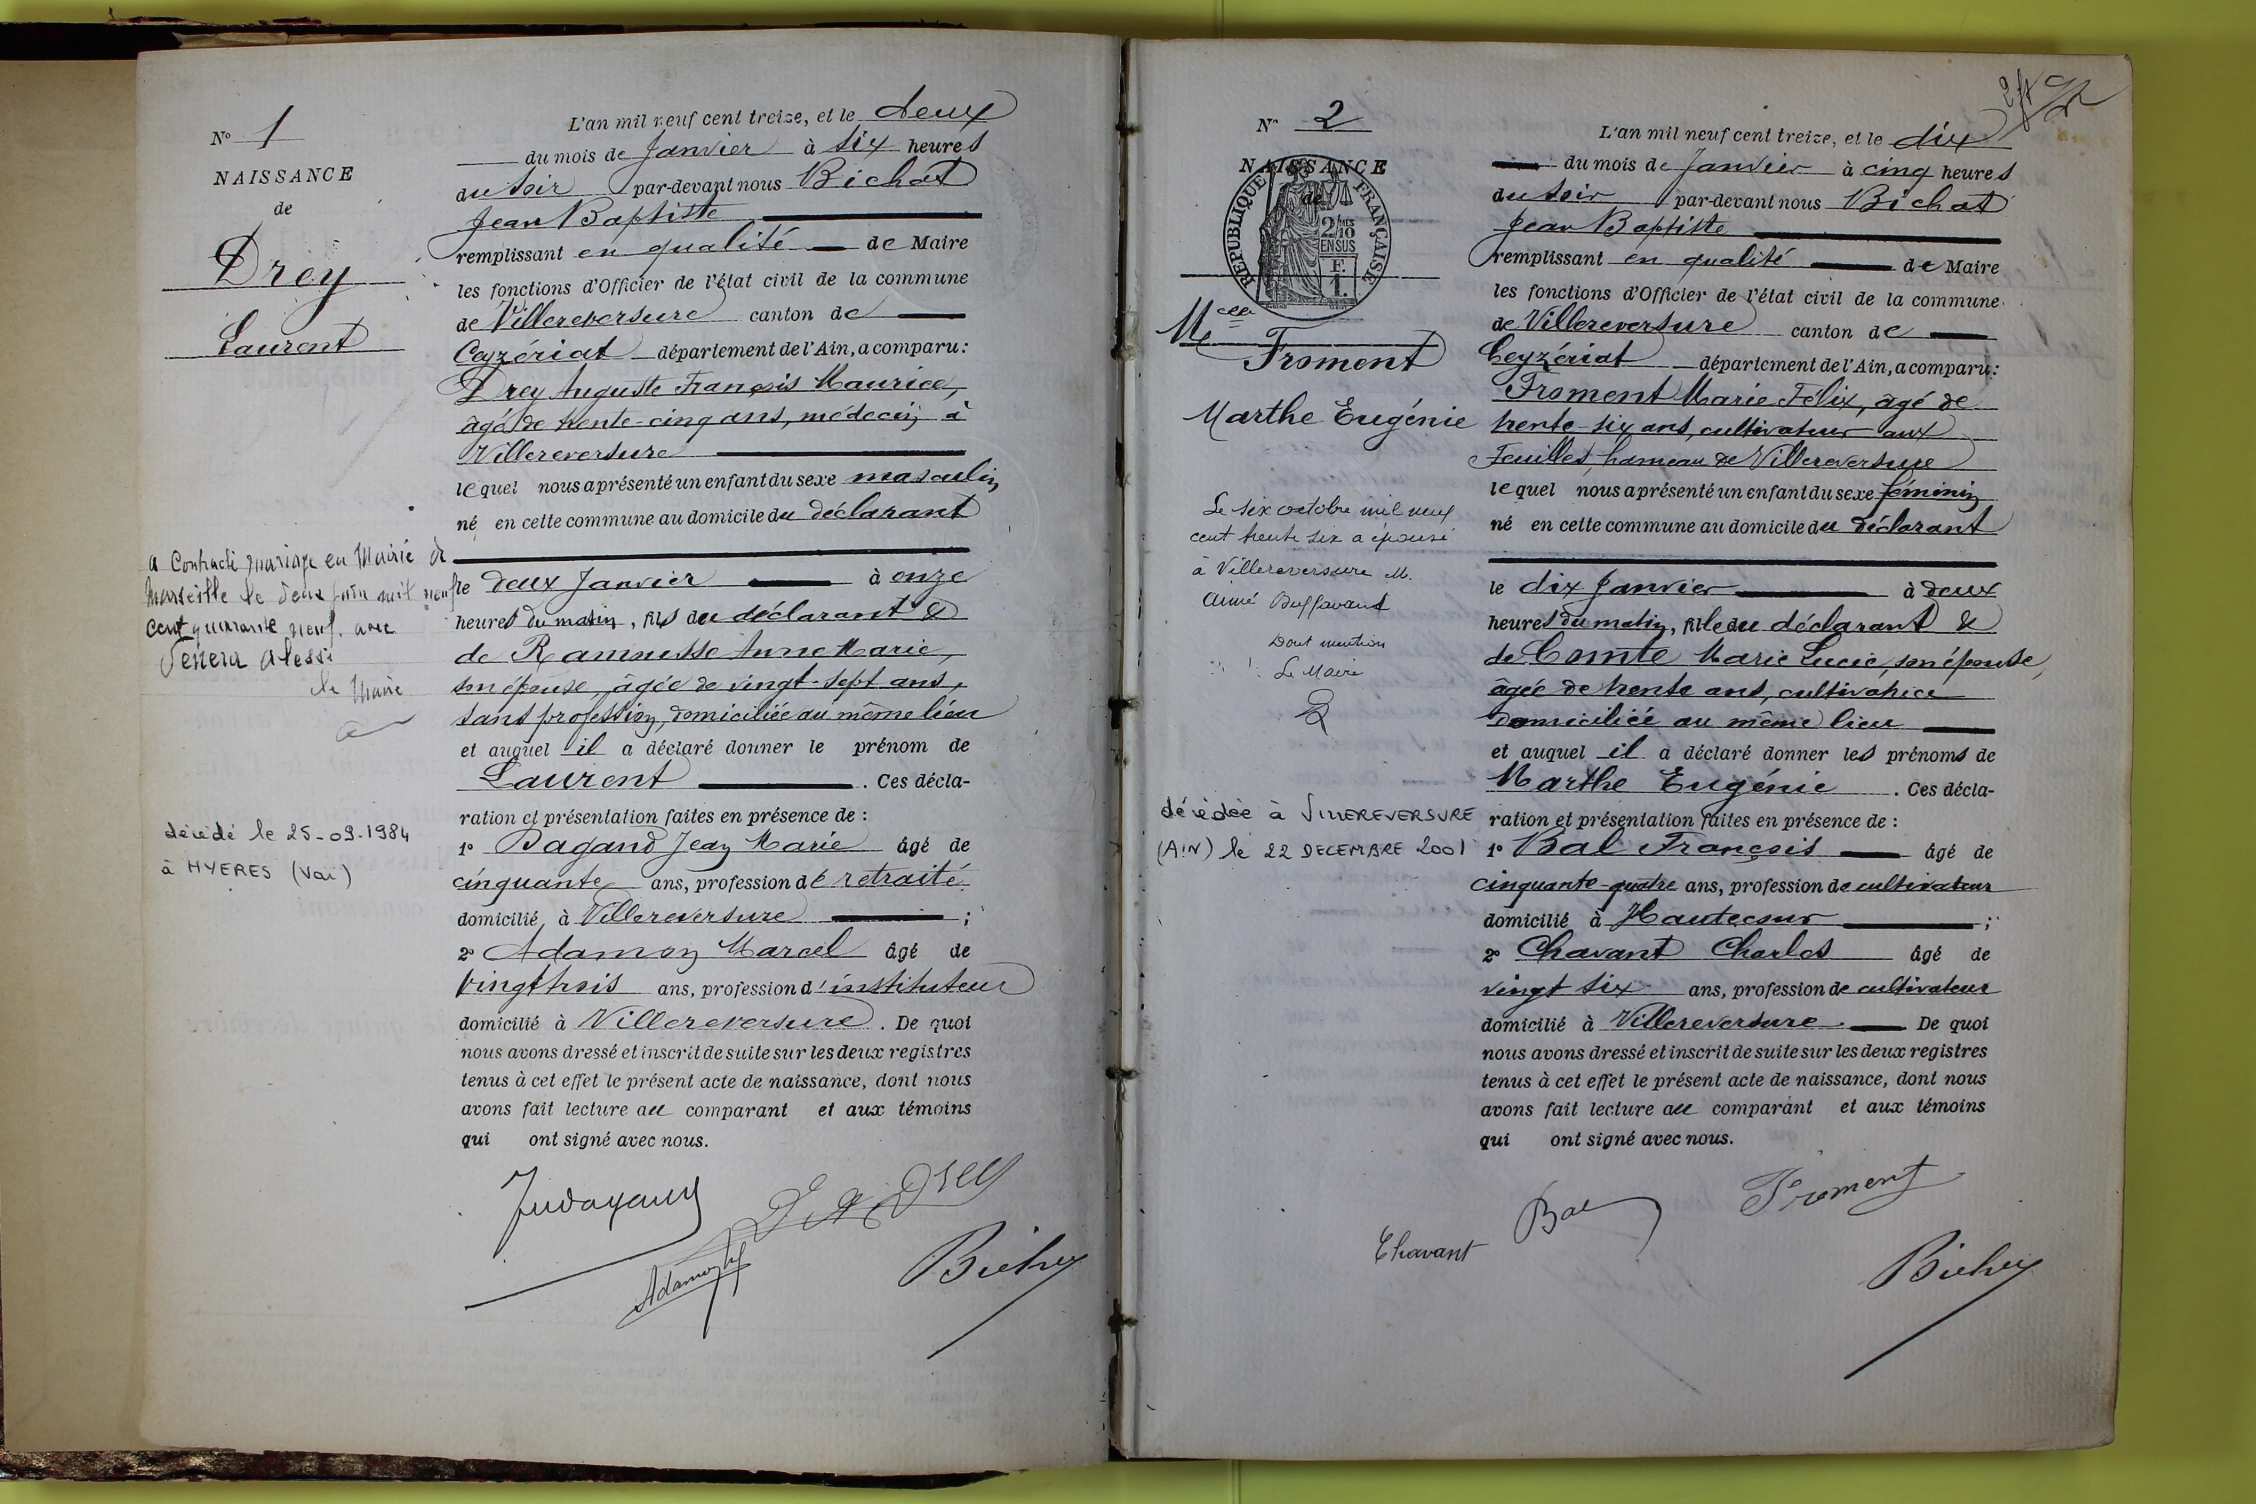 N° 1
NAISSANCE
de
Drey
Laurent
a contracté mariage en Mairie de
Marseille le deux juin mil neuf
cent quarante neuf avec
Venera Alessi
le Maire
décédé le 25-09-1984
à HYERES (Var)
L'an mil neuf cent treize, et le deux
du mois de Janvier à six heures
du soir par-devant nous Bichat
Jean Baptiste
remplissant en qualité de Maire
les fonctions d'Officier de l'état civil de la commune
de Villereversure canton de
Ceyzériat département de l'Ain, a comparu :
Drey Auguste François Maurice,
âgé de trente-cinq ans, médecin à
Villereversure
lequel nous a présenté un enfant du sexe masculin
né en cette commune au domicile du déclarant
le deux Janvier à onze
heures du matin, fils du déclarant &
de Ramousse Anne Marie,
son épouse, âgée de vingt-sept ans,
sans profession, domiciliée au même lieu
et auquel il a déclaré donner le prénom de
Laurent . Ces décla-
ration et présentation faites en présence de :
1° Dagand Jean Marie âgé de
cinquante ans, profession de retraité
domicilié à Villereversure ;
2° Adamon Marcel âgé de
vingt trois ans, profession d'instituteur
domicilié à Villereversure . De quoi
nous avons dressé et inscrit de suite sur les deux registres
tenus à cet effet le présent acte de naissance, dont nous
avons fait lecture au comparant et aux témoins
qui ont signé avec nous.
Drey
Adamon
Bichat
N° 2
NAISSANCE
de
RÉPUBLIQUE FRANÇAISE
2/10
EN SUS
F.
1.
Melle
Froment
Marthe Eugénie
Le six octobre mil neuf
cent trente six a épousé
à Villereversure M.
Aimé Buffavand
Dont mention
Le Maire
décédée à VILLEREVERSURE
(AIN) le 22 DECEMBRE 2001
L'an mil neuf cent treize, et le dix
du mois de Janvier à cinq heures
du soir par-devant nous Bichat
Jean Baptiste
remplissant en qualité de Maire
les fonctions d'Officier de l'état civil de la commune
de Villereversure canton de
Ceyzériat département de l'Ain, a comparu :
Froment Marie Félix, âgé de
trente-six ans, cultivateur aux
Feuilles, hameau de Villereversure
lequel nous a présenté un enfant du sexe féminin
né en cette commune au domicile du déclarant
le dix Janvier à deux
heures du matin, fille du déclarant &
de Comte Marie Lucie, son épouse,
âgée de trente ans, cultivatrice
domiciliée au même lieu
et auquel il a déclaré donner les prénoms de
Marthe Eugénie . Ces décla-
ration et présentation faites en présence de :
1° Bal François âgé de
cinquante-quatre ans, profession de cultivateur
domicilié à Hautecour ;
2° Chavant Charles âgé de
vingt six ans, profession de cultivateur
domicilié à Villereversure . De quoi
nous avons dressé et inscrit de suite sur les deux registres
tenus à cet effet le présent acte de naissance, dont nous
avons fait lecture au comparant et aux témoins
qui ont signé avec nous.
Chavant
Bal
Froment
Bichat